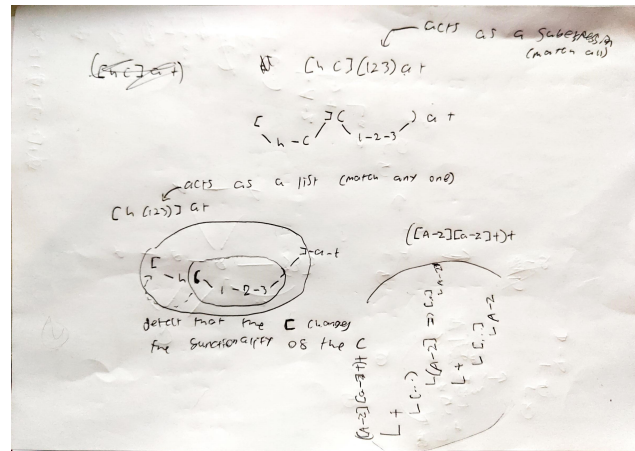 acts as a subexpression
(match all)
([hc]at)
[hc](123)at
[ ]( ) at
h-c 1-2-3
acts as a list (match any one)
[h(123)]at
([A-Z][a-z]+)+
[ ]-a-t
h ( 1-2-3
detect that the [ changes
the functionality of the (
([A-Z][a-z]+)+
+
(...)
[A-Z]
+
[...]
A-Z